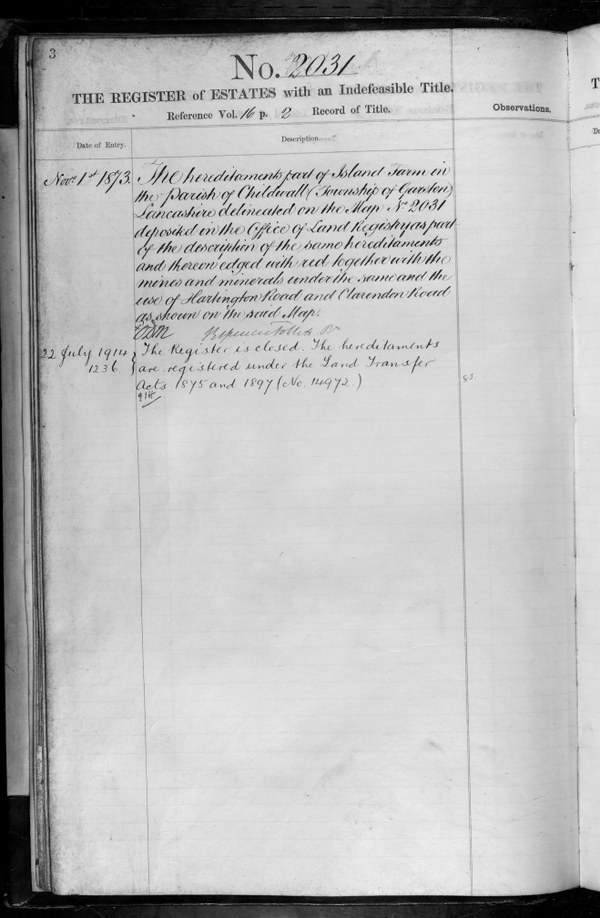 3
No. 2031
THE REGISTER of ESTATES with an Indefeasible Title.
Reference Vol. 16 p. 2 Record of Title.
Observations.
Date of Entry.
Description.
Novr. 1st 1873.
The hereditaments part of Island Farm in
the Parish of Childwall (Township of Garston)
Lancashire delineated on the Map No 2031
deposited in the Office of Land Registry as part
of the description of the same hereditaments
and thereon edged with red together with the
mines and minerals under the same and the
use of Hartington Road and Clarendon Road
as shown on the said Map.
22 July 1914
1236
The Register is closed. The hereditaments
are registered under the Land Transfer
Acts 1875 and 1897 (No. 14972)